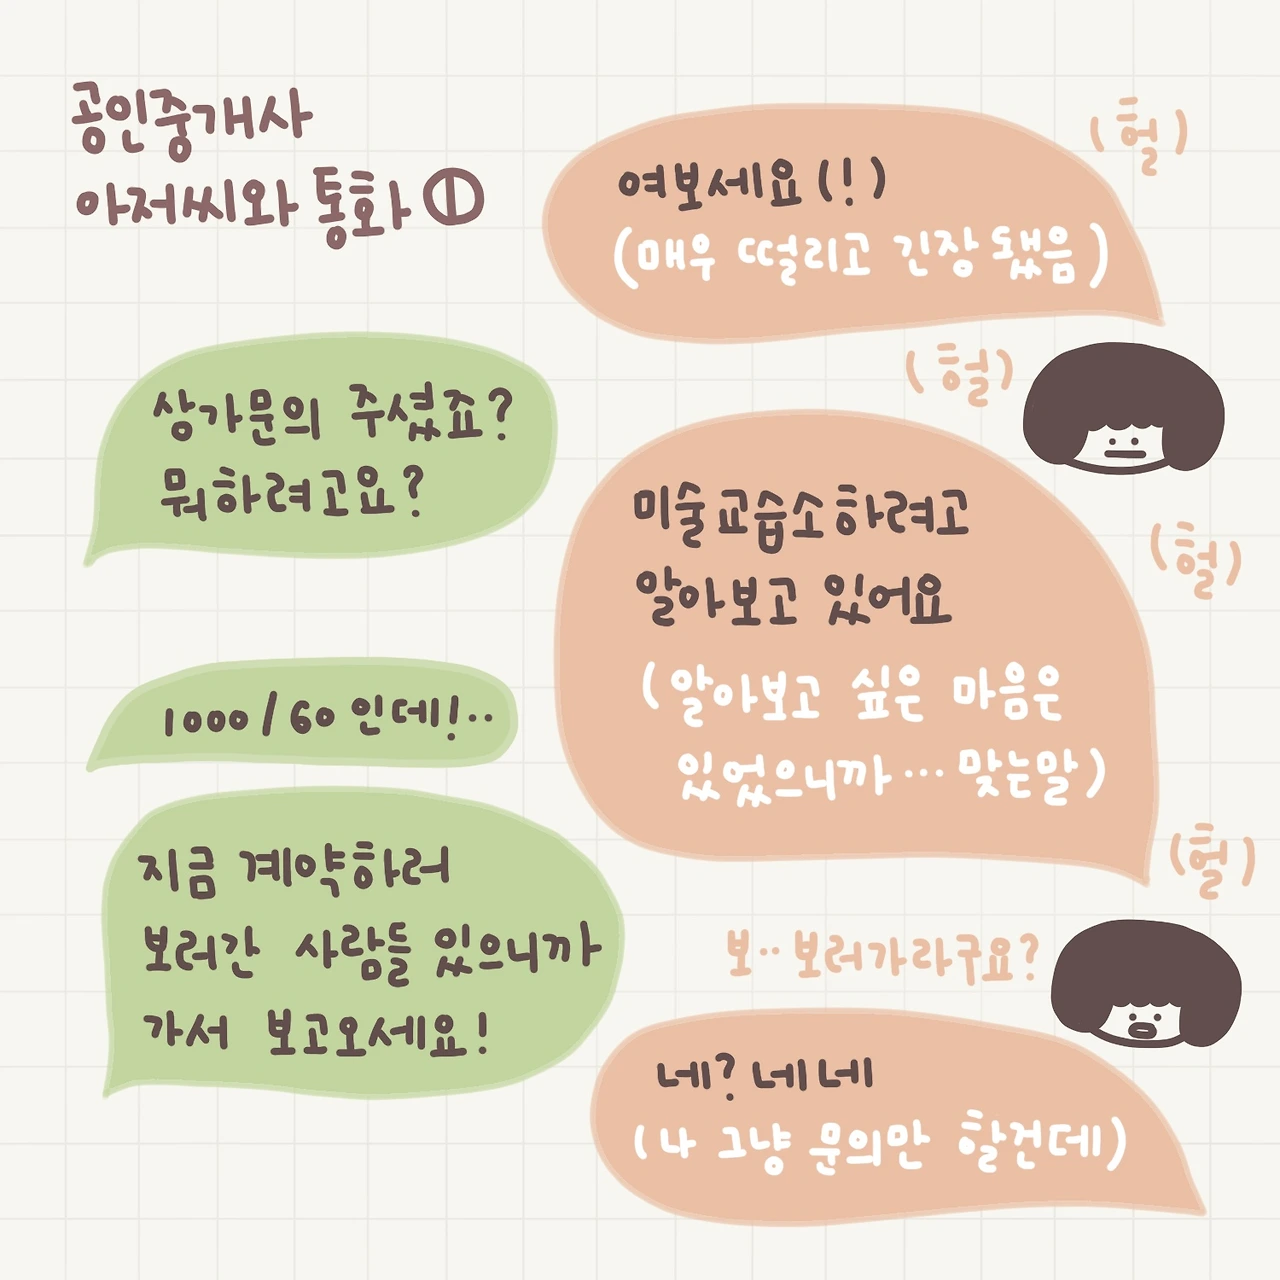 공인중개사
아저씨와 통화 ①
(헐)
여보세요(!)
(매우 떨리고 긴장 됐음)
상가문의 주셨죠?
뭐하려고요?
(헐)
미술교습소하려고
알아보고 있어요
(알아보고 싶은 마음은
있었으니까... 맞는말)
(헐)
1000/60 인데!..
지금 계약하러
보러간 사람들 있으니까
가서 보고오세요!
(헐)
보..보러가라구요?
네? 네네
(나 그냥 문의만 할건데)